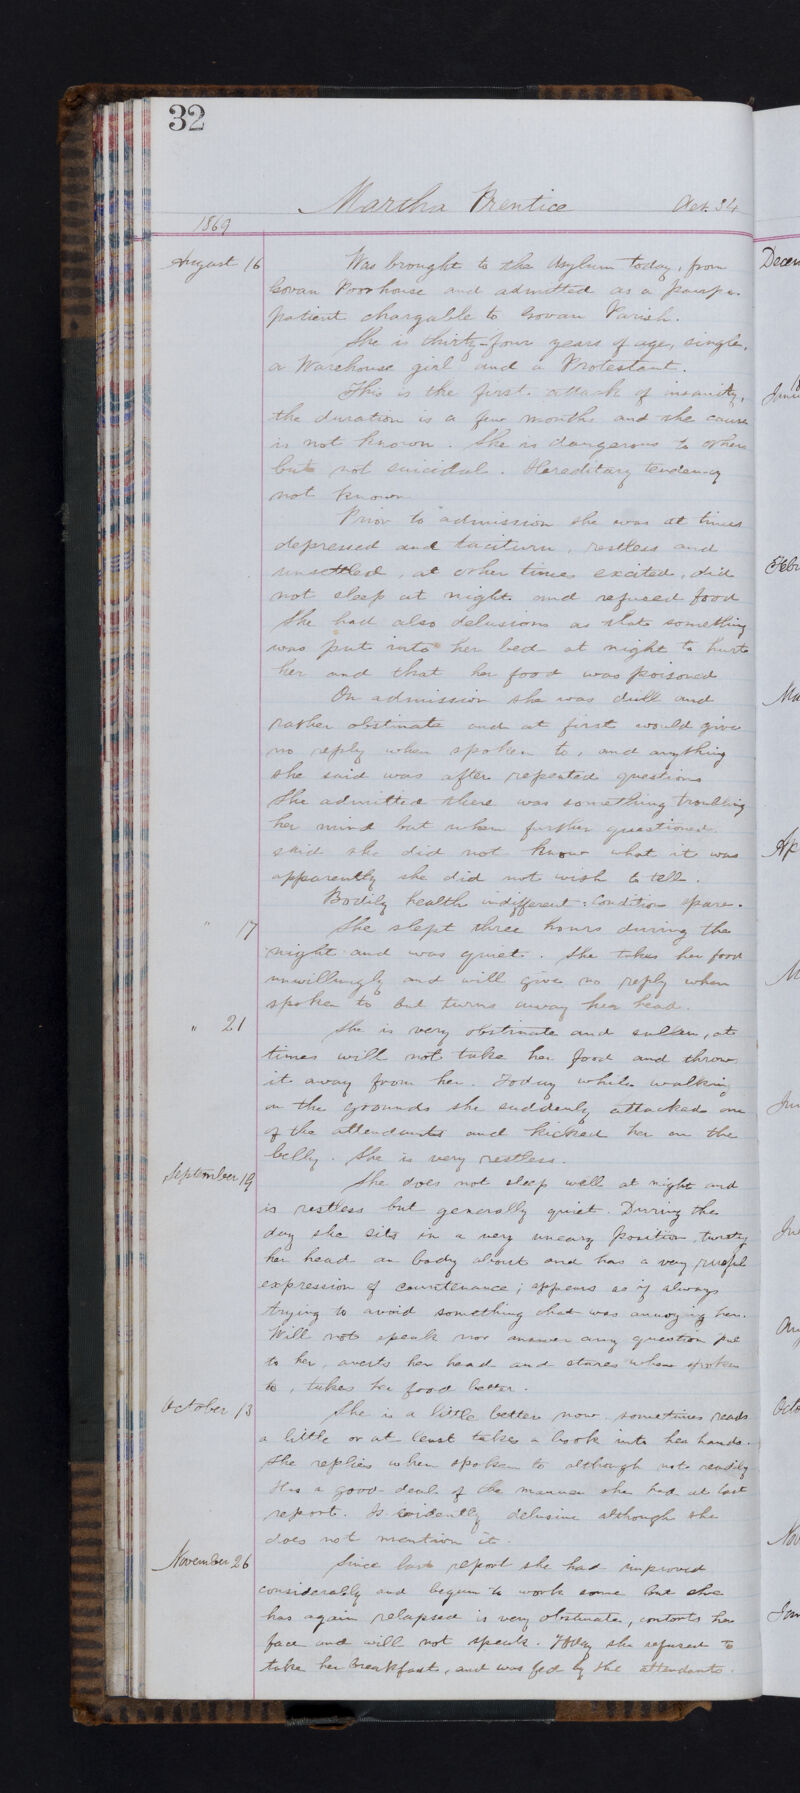 32
Martha Prentice Aet. 34
1869
August 16 Was brought to the Asylum today, from
Govan Poorhouse and admitted as a pauper
patient chargable to Govan Parish.
She is thirty-four years of age, single,
a Warehouse girl and a Protestant.
This is the first attack of insanity,
the duration is a few months and the cause
is not known. She is dangerous to others
but not suicidal. Hereditary tendency
not known
Prior to admission she was at times
depressed and taciturn, restless and
unsettled, at other times excited, did
not sleep at night and refused food
She had also delusions as that something
was put into her bed at night to hurt
her and that her food was poisoned
On admission she was dull and
rather obstinate and at first would give
no reply when spoken to, and anything
she said was after repeated questions
She admitted there was something troubling
her mind but when further questioned
said she did not know what it was
apparently she did not wish to tell.
Bodily health indifferent: Condition spare.
" 17 She slept three hours during the
night and was quiet. She takes her food
unwillingly and will give no reply when
spoken to but turns away her head.
" 21 She is very obstinate and sullen, at
times will not take her food and throws
it away from her. Today while walking
in the grounds she suddenly attacked one
of the attendants and kicked her on the
belly. She is very restless.
September 19 She does not sleep well at night and
is restless but generally quiet. During the
day she sits in a very uneasy position, twisting
her head and body about and has a very rueful
expression of countenance; appears as if always
trying to avoid something that was annoying her.
Will not speak nor answer any question put
to her, averts her head and stares when spoken
to, takes her food better.
October 13 She is a little better now, sometimes reads
a little or at least takes a book into her hands.
She replies when spoken to although not readily
Has a good deal of the manner she had at last
report. Is evidently delusive although she
does not mention it.
November 26 Since last report she had improved
considerably and begun to work some but she
has again relapsed is very obstinate, contorts her
face and will not speak. Today she refused to
take her breakfast, and was fed by the attendants.